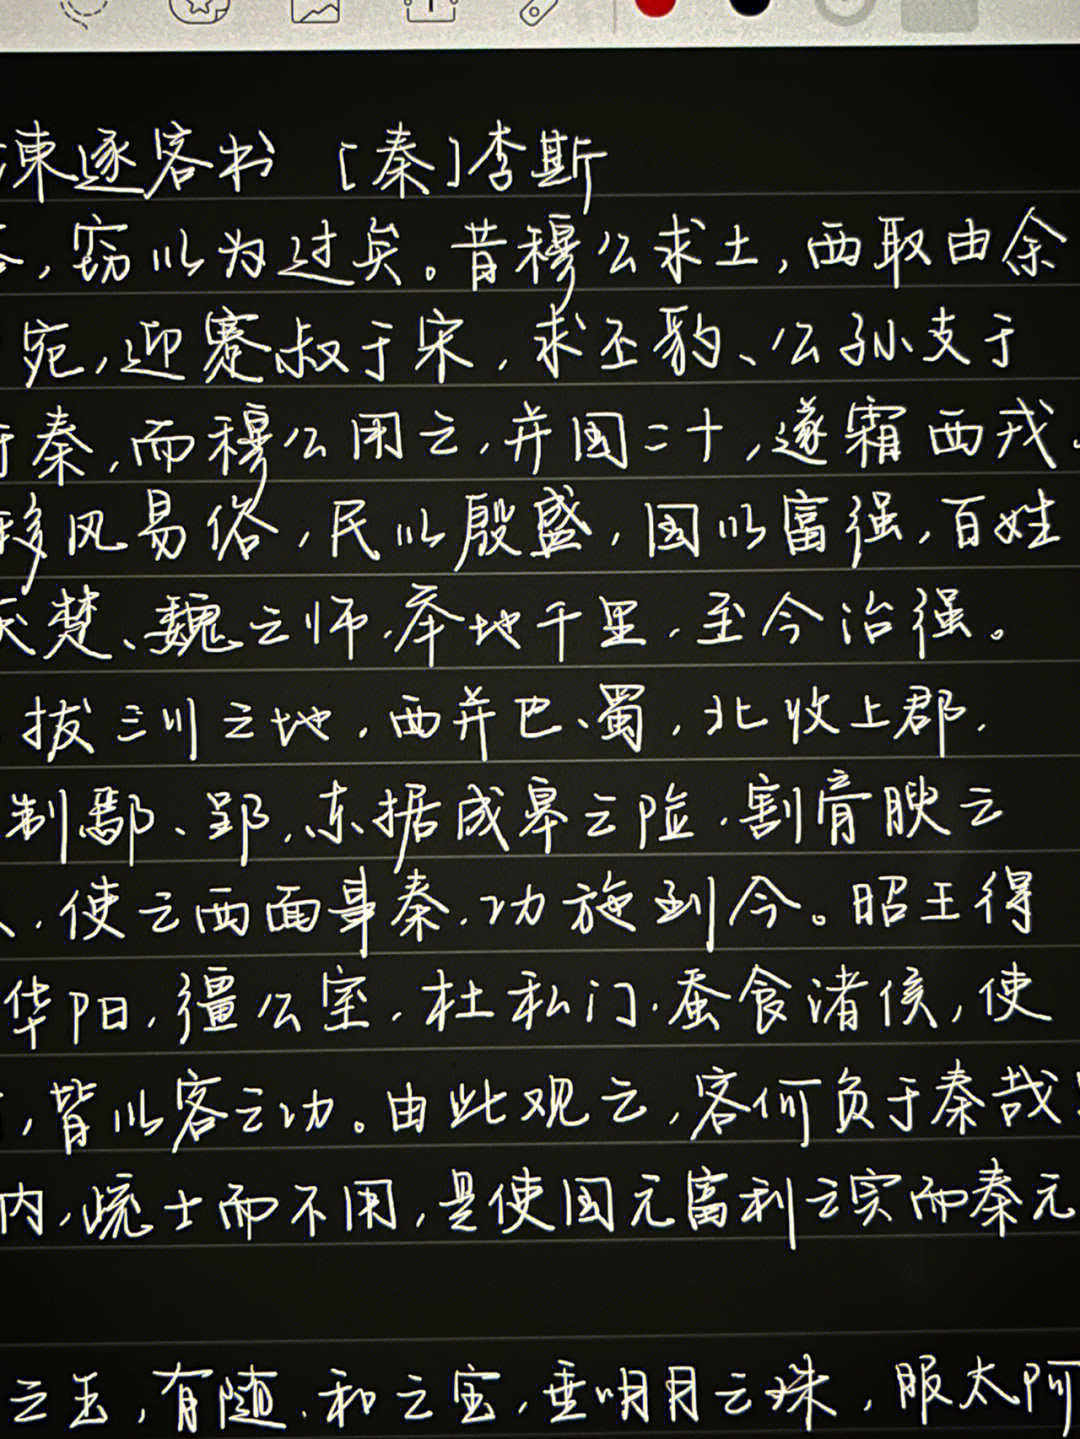 谏逐客书 [秦]李斯
客，窃以为过矣。昔穆公求士，西取由余
宛，迎蹇叔于宋，求丕豹、公孙支于
于秦，而穆公用之，并国二十，遂霸西戎。
移风易俗，民以殷盛，国以富强，百姓
楚、魏之师，举地千里，至今治强。
拔三川之地，西并巴、蜀，北收上郡，
制鄢、郢，东据成皋之险，割膏腴之
，使之西面事秦，功施到今。昭王得
华阳，彊公室，杜私门，蚕食诸侯，使
，皆以客之功。由此观之，客何负于秦哉！
内，疏士而不用，是使国无富利之实而秦无
之玉，有随、和之宝，垂明月之珠，服太阿